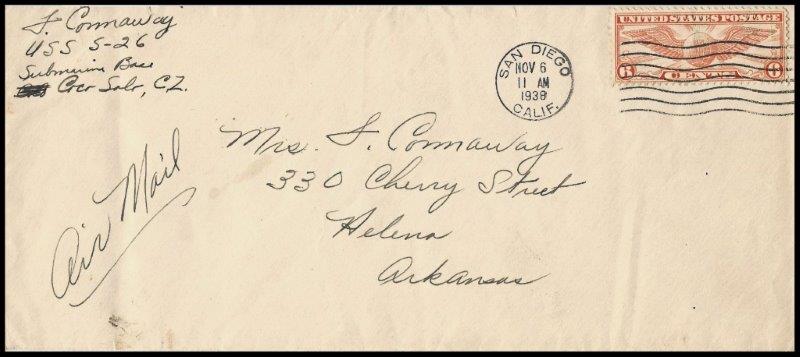 J. Connaway
USS S-26
Submarine Base
Coco Solo, C.Z.
SAN DIEGO
NOV 6
11 AM
1938
CALIF.
UNITED STATES POSTAGE
6 CENTS 6
Air Mail
Mrs. J. Connaway
330 Cherry Street
Helena
Arkansas